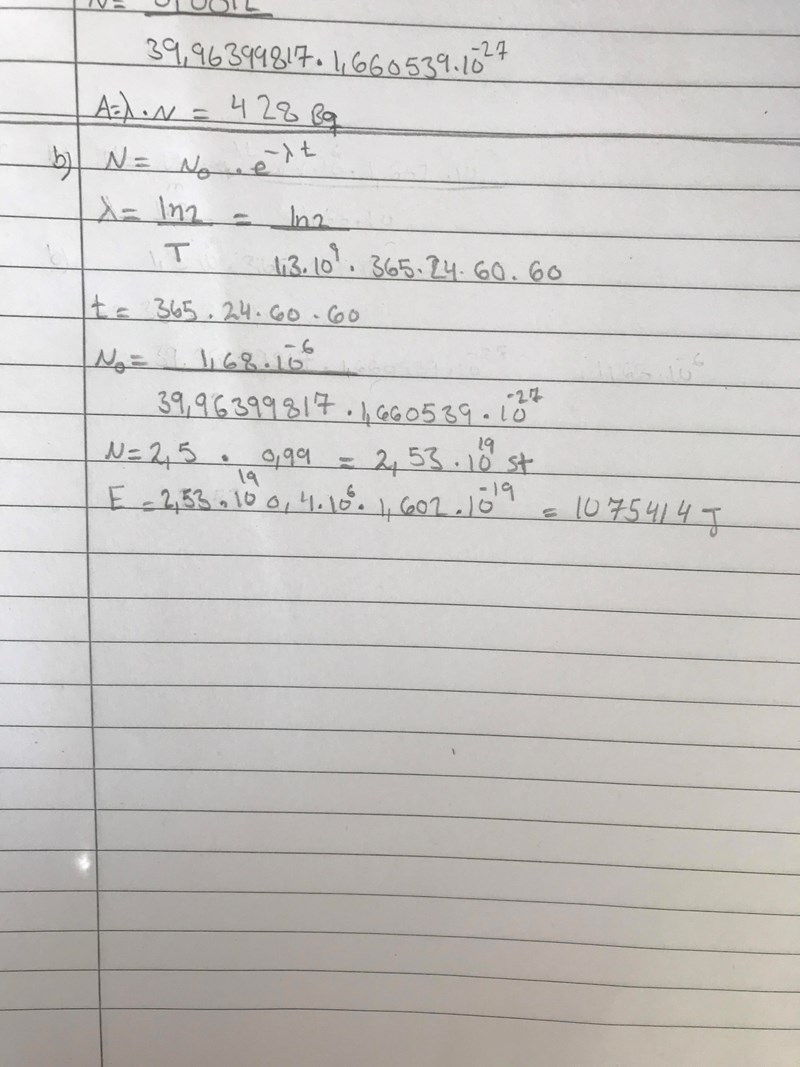 39,96399817 · 1,660539 · 10^-27
A = λ · N = 428 Bq
b) N = N₀ · e^-λt
λ = ln2 / T = ln2 / 1,3 · 10^9 · 365 · 24 · 60 · 60
t = 365 · 24 · 60 · 60
N₀ = 1,68 · 10^-6 / 39,96399817 · 1,660539 · 10^-27
N = 2,5 · 0,99 = 2,53 · 10^19 st
E = 2,53 · 10^19 0,4 · 10^6 · 1,602 · 10^-19 = 1075414 J